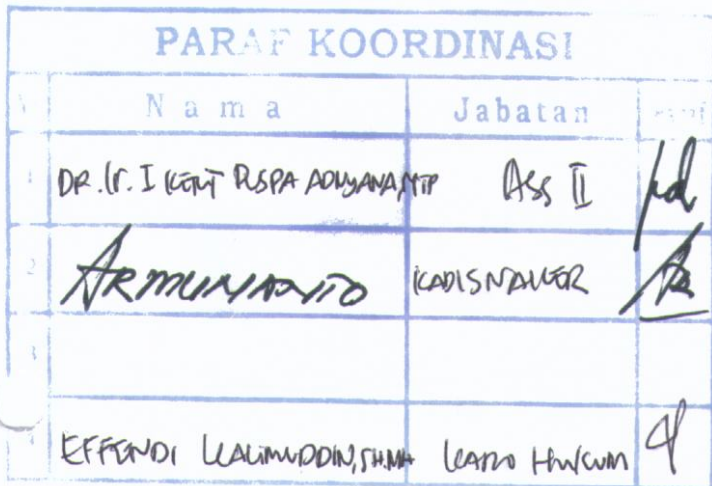 PARAF KOORDINASI
Nama Jabatan
1 DR. Ir. I KETUT PUSPA ADNYANA, MTP Ass II
2 ARMUNANTO KADISNAKER
3
EFFENDI KALIMUDDIN, SH.MH KARO HUKUM